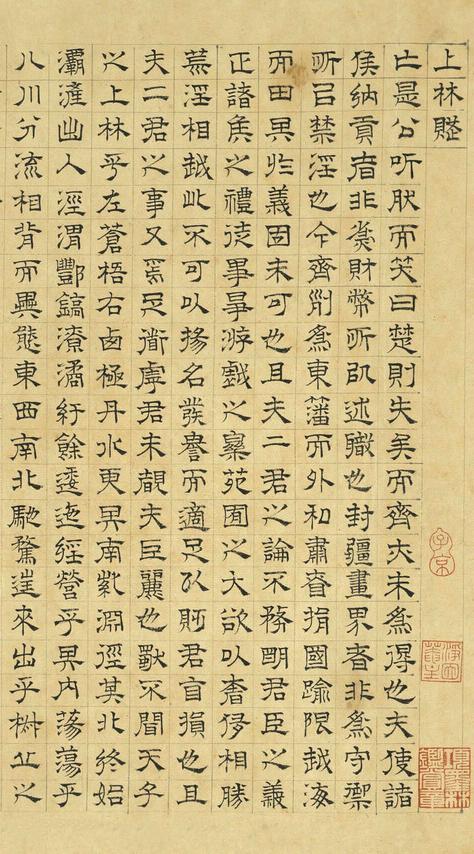 上林賦
亡是公听肰而笑曰楚則失矣而齊亦未為得也夫使諸
侯納貢者非為財幣所以述職也封疆畫界者非為守禦
所以禁淫也今齊列為東藩而外和肅昚捐國踰限越海
而田其於義固未可也且夫二君之論不務明君臣之義
正諸侯之禮徒事爭游戲之樂苑囿之大欲以奢侈相勝
荒淫相越此不可以揚名發譽而適足以貶君自損也且
夫二君之事又焉足道虖君未睹夫巨麗也獨不聞天子
之上林乎左蒼梧右西極丹水更其南紫淵徑其北終始
灞滻出入涇渭酆鎬潦潏紆餘逶迤經營乎其內蕩蕩乎
八川分流相背而異態東西南北馳騖往來出乎椒丘之
子京